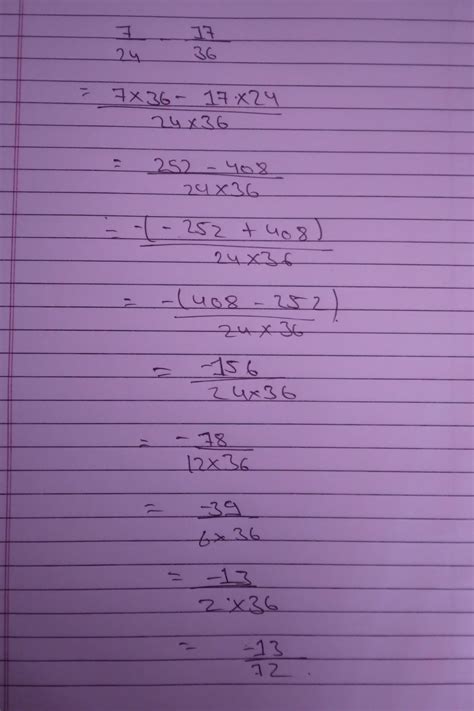 7/24 - 17/36
= (7×36 - 17×24)/(24×36)
= (252 - 408)/(24×36)
= -(-252 + 408)/(24×36)
= -(408 - 252)/(24×36).
= -156/(24×36)
= -78/(12×36)
= -39/(6×36)
= -13/(2×36)
= -13/72.